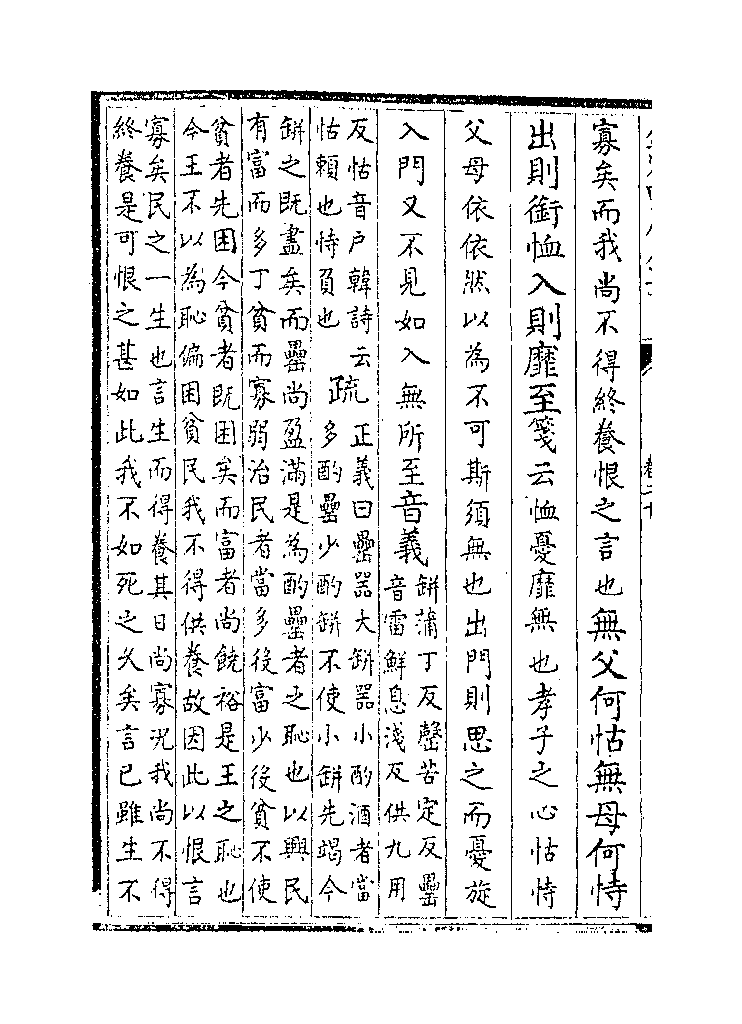 寡矣而我尚不得終養恨之言也無父何怙無母何恃
出則銜恤入則靡至箋云恤憂靡無也孝子之心怙恃
父母依依然以為不可斯須無也出門則思之而憂旋
入門又不見如入無所至音義
缾蒲丁反罄苦定反罍
音雷鮮息淺反供九用
反怙音户韓詩云
怙賴也恃負也
疏
正義曰罍器大缾器小酌酒者當
多酌罍少酌缾不使小缾先竭今
缾之既盡矣而罍尚盈滿是為酌罍者之恥也以興民
有富而多丁貧而寡弱治民者當多役富少役貧不使
貧者先困今貧者既困矣而富者尚饒裕是王之恥也
今王不以為恥偏困貧民我不得供養故因此以恨言
寡矣民之一生也言生而得養其日尚寡况我尚不得
終養是可恨之甚如此我不如死之久矣言已雖生不